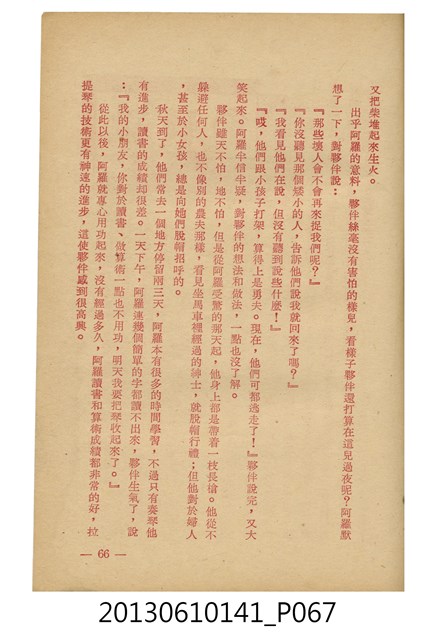 又把柴堆起來生火。
出乎阿羅的意料，夥伴絲毫沒有害怕的樣兒，看樣子夥伴還打算在這兒過夜呢？阿羅默
想了一下，對夥伴說：
『那些壞人會不會再來捉我們呢？』
『你沒聽見那個矮小的人，告訴他們說我就回來了嗎？』
『我看見他們在說，但沒有聽到說些什麼！』
『哎，他們跟小孩子打架，算得上是勇夫。現在，他們可都逃走了！』夥伴說完，又大
笑起來。阿羅半信半疑，對夥伴的想法和做法，一點也沒了解。
夥伴雖天不怕，地不怕，但是從阿羅受驚的那天起，他身上都是帶着一枝長槍。他從不
躲避任何人，也不像別的農夫那樣，看見坐馬車裡經過的紳士，就脫帽行禮；但他對於婦人
，甚至於小女孩，總是向她們脫帽招呼的。
秋天到了，他們常去一個地方停留兩三天，阿羅本有很多的時間學習，不過只有奏琴他
有進步，讀書的成績却很差。一天下午，阿羅連幾個簡單的字都讀不出來，夥伴生氣了，說
：『我的小朋友，你對於讀書、做算術一點也不用功，明天我要把琴收起來了。』
從此以後，阿羅就專心用功起來，沒有經過多久，阿羅讀書和算術成績都非常的好，拉
提琴的技術更有神速的進步，這使夥伴感到很高興。
— 66 —
20130610141_P067